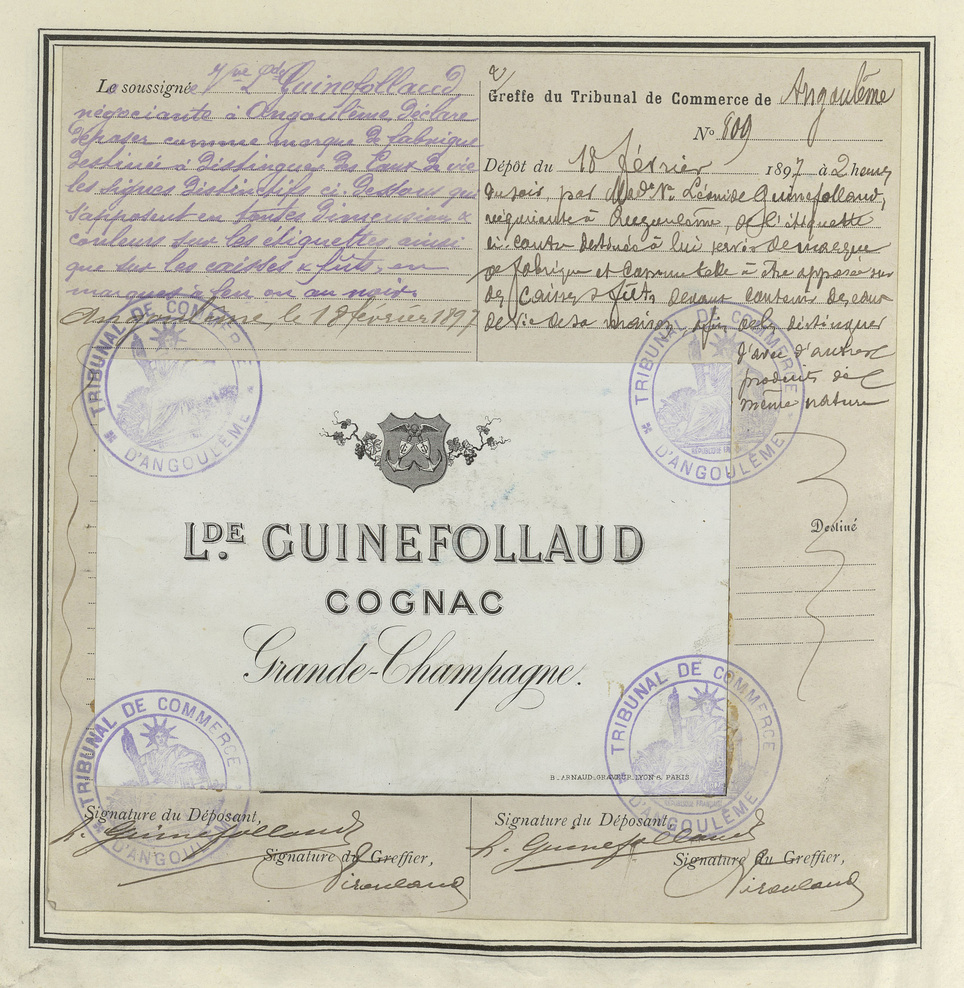 La soussignée Vve Lde Guinefollaud,
négociante à Angoulême, déclare
déposer comme marque de fabrique
destinée à distinguer des eaux de vie
les signes distinctifs ci-dessous qui
s'apposent en toutes dimensions &
couleurs sur les étiquettes ainsi
que sur les caisses & fûts, en
marques à feu ou au noir.
Angoulême, le 18 février 1897
Greffe du Tribunal de Commerce de Angoulême
No 809
Dépôt du 18 février 1897 à 2 heures
du soir, par Made Ve Léonide Guinefollaud,
négociante à Angoulême, de l'étiquette
ci-contre destinée à lui servir de marque
de fabrique et comme telle à être apposée sur
des caisses & fûts devant contenir des eaux
de vie de sa maison, afin de les distinguer
d'avec d'autres
produits de
même nature
Destiné
TRIBUNAL DE COMMERCE
D'ANGOULÊME
TRIBUNAL DE COMMERCE
D'ANGOULÊME
LDE GUINEFOLLAUD
COGNAC
Grande-Champagne.
B. ARNAUD. GRAVEUR. LYON & PARIS
TRIBUNAL DE COMMERCE
D'ANGOULÊME
TRIBUNAL DE COMMERCE
D'ANGOULÊME
Signature du Déposant,
L. Guinefollaud
Signature du Greffier,
Signature du Déposant,
L. Guinefollaud
Signature du Greffier,